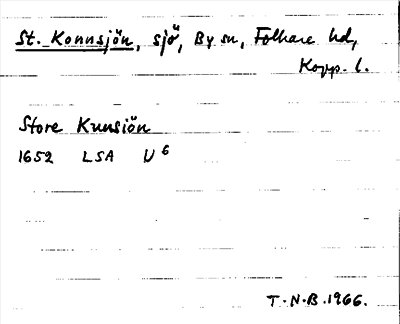 St. Konnsjön, sjö, By sn, Folkare hd,
Kopp. l.
Store Kunsiön
1652 LSA U6
T.N.B. 1966.